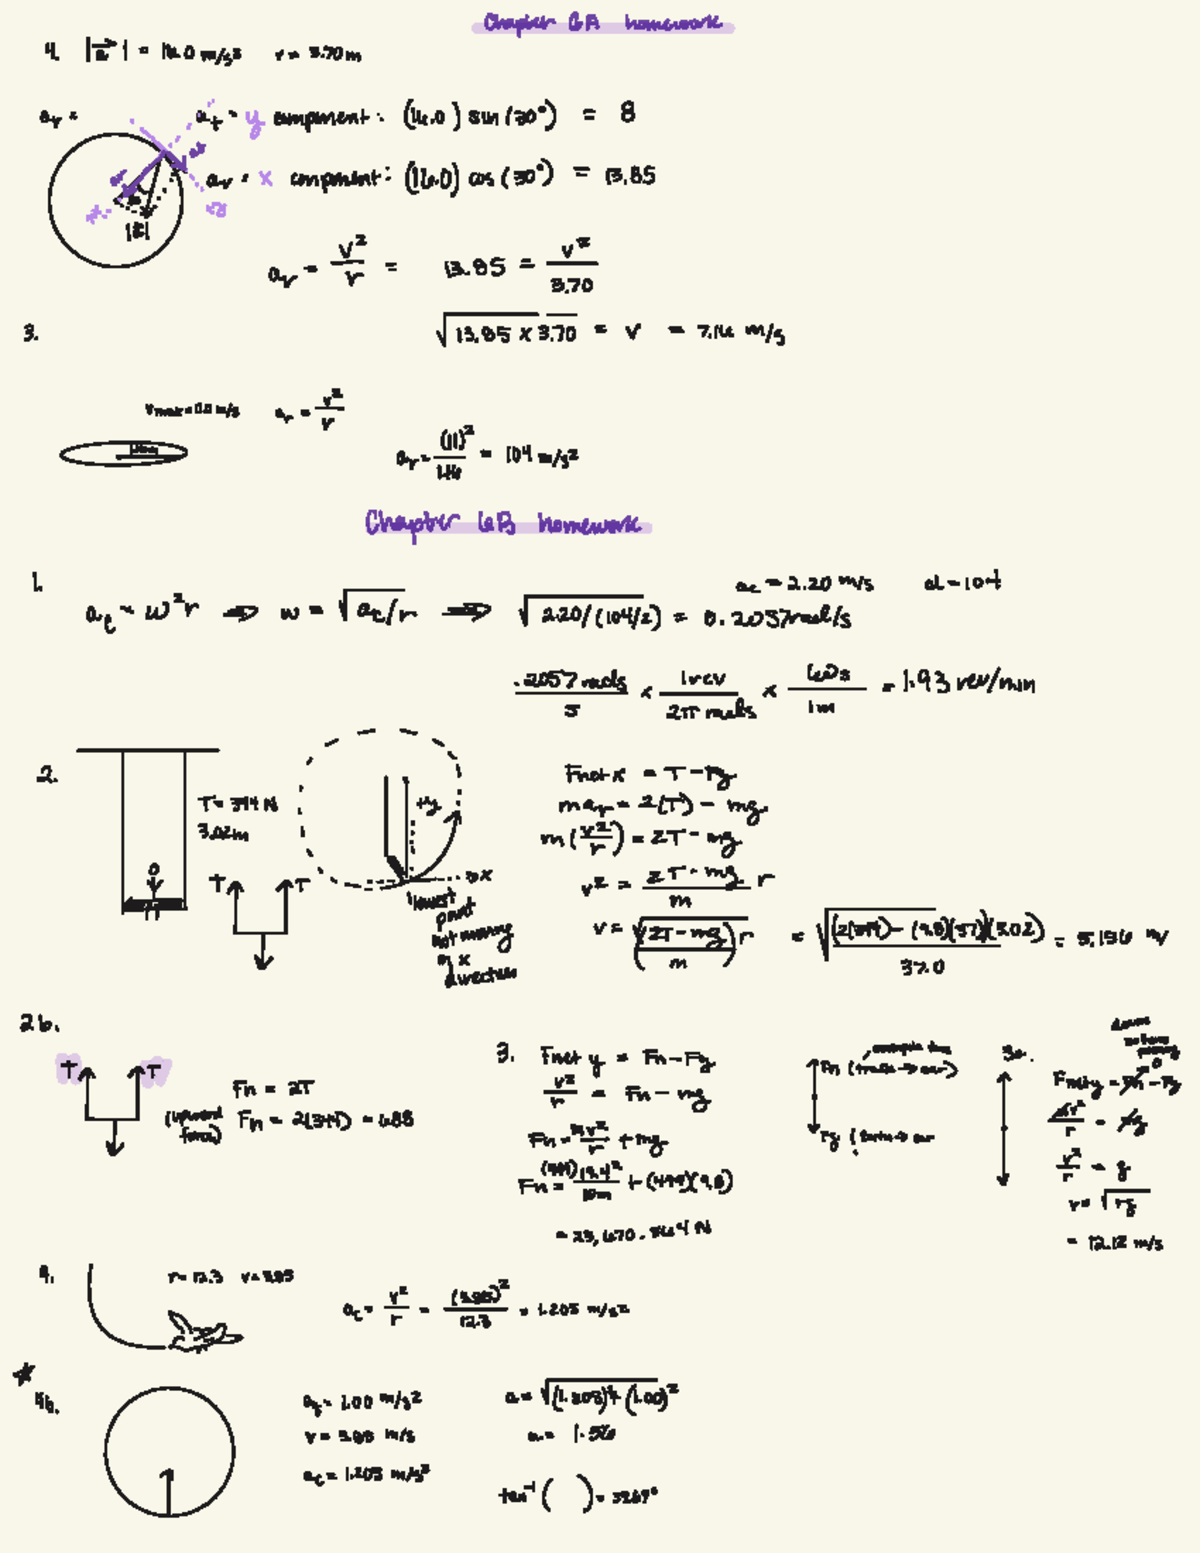 Chapter 6A homework
4. |a| = 16.0 m/s² r = 3.70 m
ar =
at = y component: (16.0) sin(30°) = 8
ar = x component: (16.0) cos(30°) = 13.85
|a|
ar = v²/r = 13.85 = v²/3.70
√13.85 x 3.70 = v = 7.16 m/s
3.
ar = v²/r
ar = (11)²/1.16 = 104 m/s²
Chapter 6B homework
1. ac = 2.20 m/s d = 104
at = ω²r ⇒ ω = √at/r ⇒ √2.20/(104/2) = 0.2057 rad/s
.2057 rads/s x 1 rev/2π rads x 60s/1m = 1.93 rev/min
2. T = 344 N
3.02m
T T
+y
x
lowest
point
not moving
in x
direction
Fnet x = T - Fg
mar = 2(T) - mg
m(v²/r) = 2T - mg
v² = 2T - mg/m r
v = √(2T - mg/m) r = √(2(344) - (9.8)(37)(3.02)/37.0 = 5.156 m/
2b.
T T
Fn = 2T
(upward force) Fn = 2(344) = 688
3. Fnet y = Fn - Fg
v²/r = Fn - mg
Fn = mv²/r + mg
Fn = 19.4²/10m + (499)(9.8)
Fn (track → car)
Fg
3b.
Fnety = Fn - Fg
0
v²/r = g
v = √rg
= 12.12 m/s
4. r = 12.3 v = 3.85
ac = v²/r = (3.85)²/12.3 = 1.205 m/s²
4b.
at = 1.00 m/s² a = √(1.205)² + (1.00)²
v = 3.85 m/s a = 1.56
ac = 1.205 m/s²
tan⁻¹ ( ) = 39.69°